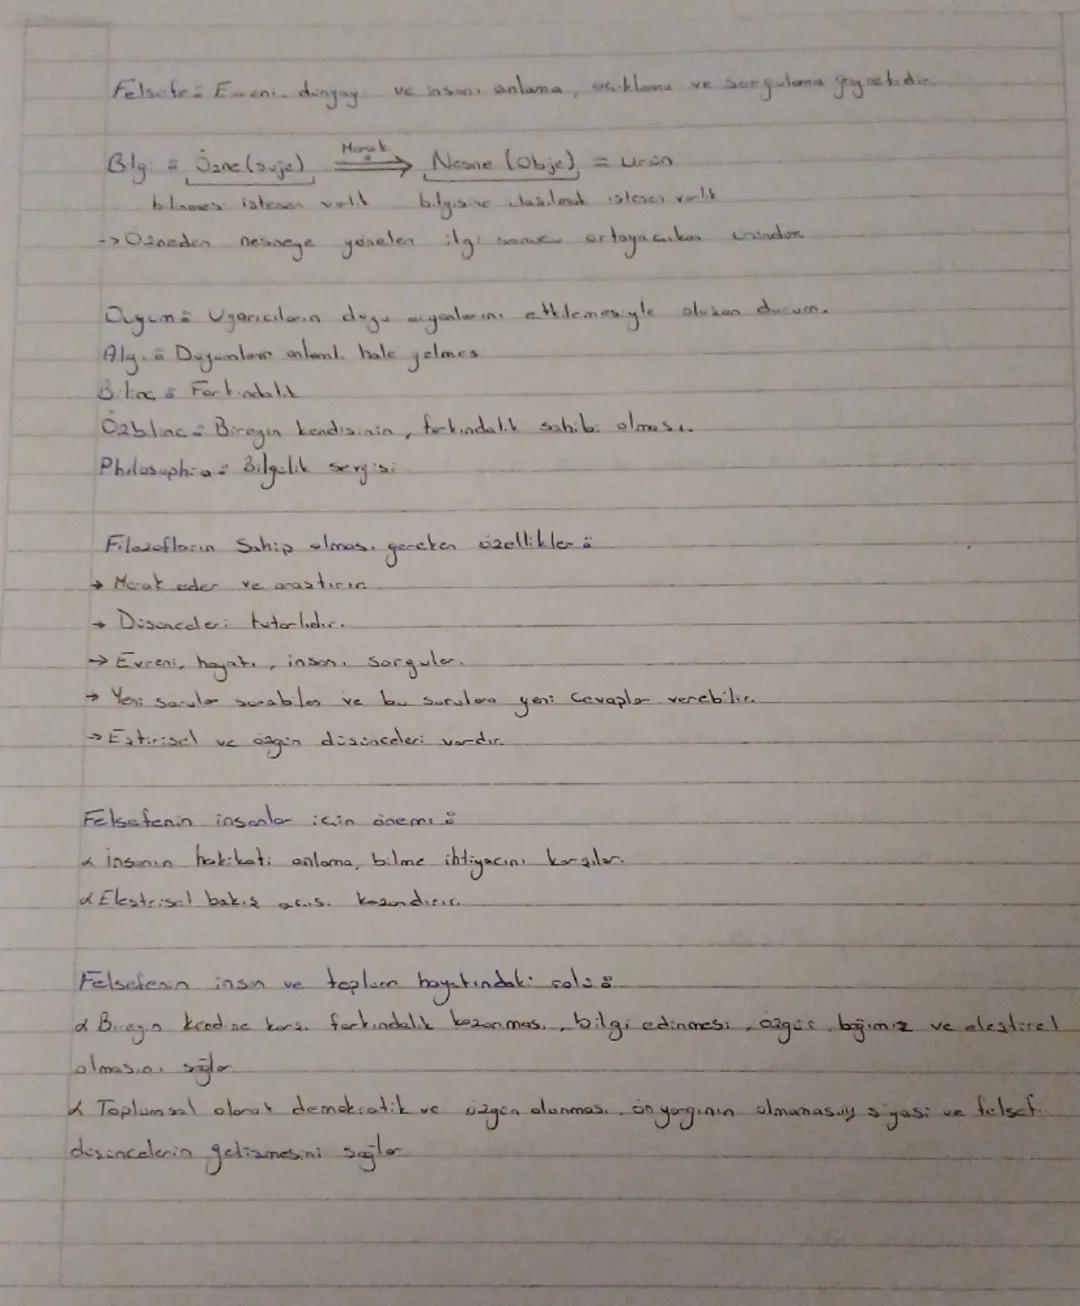 Felsefe: Evreni, dünyayı ve insanı anlama, açıklama ve sorgulama gayretidir.
Bilgi: Özne (suje) Merak Nesne (Obje) = ürün
bilmek istenen varlık bilgisine ulaşılmak istenen varlık
-> Özneden nesneye yönelen ilgi sonucu ortaya çıkan üründür
Duyum: Uyarıcıların duyu organlarını etkilemesiyle oluşan durum.
Algı: Duyumların anlamlı hale gelmesi
Bilinç: Farkındalık
Özbilinç: Bireyin kendisinin, farkındalık sahibi olması.
Philosophia: Bilgelik sevgisi
Filozofların Sahip olması gereken özellikler:
→ Merak eder ve araştırır
→ Düşünceleri tutarlıdır.
→ Evreni, hayatı, insanı sorgular.
→ Yeni sorular sorabilen ve bu sorulara yeni cevaplar verebilir.
→ Eştirisel ve özgün düşünceleri vardır.
Felsefenin insanlar için önemi:
α insanın hakikati anlama, bilme ihtiyacını karşılar.
α Eleştrisel bakış açısı kazandırır.
Felsefenin insan ve toplum hayatındaki rolü:
α Bireyin kendine karşı farkındalık kazanması, bilgi edinmesi, özgür, bağımız ve eleştirel
olmasını sağlar
α Toplumsal olarak demokratik ve özgün olunması, ön yargının olmaması, siyasi ve felsefi
düşüncelerin gelişmesini sağlar